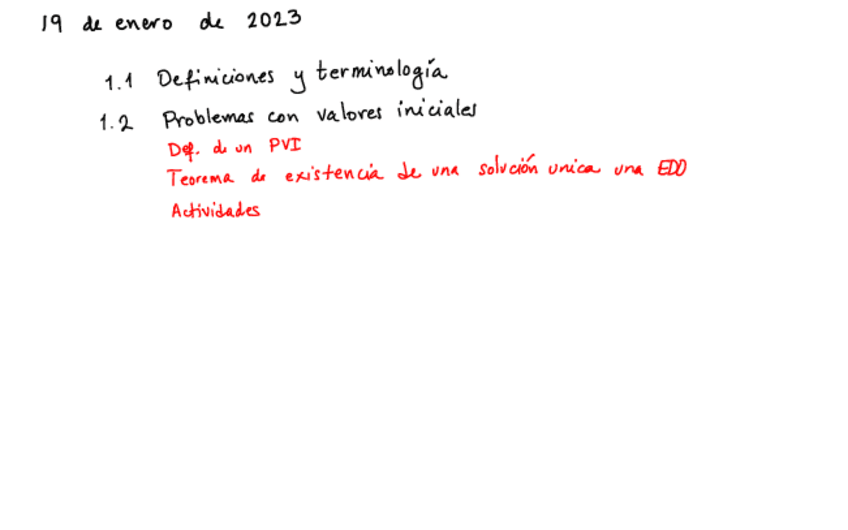 19 de enero de 2023
1.1 Definiciones y terminología
1.2 Problemas con valores iniciales
Def. de un PVI
Teorema de existencia de una solución unica una EDO
Actividades